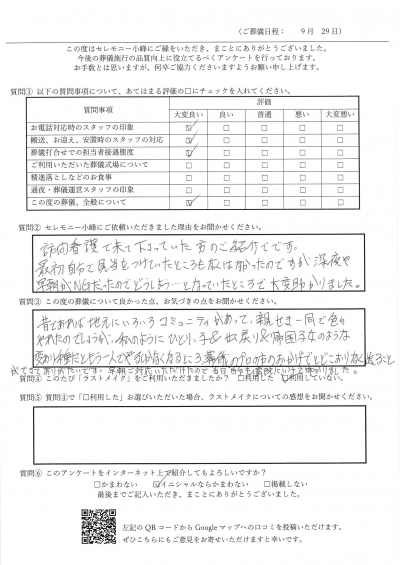 (ご葬儀日程： 9月 29日)
この度はセレモニー小峰にご縁をいただき、まことにありがとうございました。
今後の葬儀施行の品質向上に役立てるべくアンケートを行っております。
お手数とは思いますが、何卒ご協力くださいますようお願い申し上げます。
質問① 以下の質問事項について、あてはまる評価の□にチェックを入れてください。
質問事項 評価
大変良い 良い 普通 悪い 大変悪い
お電話対応時のスタッフの印象 ☑ □ □ □ □
搬送、お迎え、安置時のスタッフの対応 ☑ □ □ □ □
葬儀打合せでの担当者接遇態度 ☑ □ □ □ □
ご利用いただいた葬儀式場について □ □ □ □ □
精進落としなどのお食事 □ □ □ □ □
通夜・葬儀運営スタッフの印象 □ □ □ □ □
この度の葬儀、全般について ☑ □ □ □ □
質問② セレモニー小峰にご依頼いただきました理由をお聞かせください。
訪問看護で来て下さっていた方のご紹介でです。
最初自分で見当をつけていたところも
深夜や
早朝がNGだったのでどうしよう…となっていたところで大変助かりました。
質問③ この度の葬儀について良かった点、お気づきの点をお聞かせください。
昔であれば地元にいろいろコミュニティがあって、親せき一同で色々
やれたのでしょうが、私のようにひとり、子&出戻り&帰国子女のような
変わり種だともう一人でやるしかなくなるところ
おかげでとどこおりなく送ること
ができてありがたいです。早朝ご対応いただけたので当日
質問④ このたび「ラストメイク」をご利用されましたか？ □利用した ☑利用していない。
質問⑤ 質問④で「□利用した」お選びいただいた場合、ラストメイクについての感想をお聞かせください。
質問⑥ このアンケートをインターネット上で紹介してもよろしいですか？
□かまわない ☑イニシャルならかまわない □掲載しない
最後までご記入いただき、まことにありがとうございます。
左記のQRコードからGoogleマップへの口コミを投稿いただけます。
ぜひこちらにもご意見をお寄せいただけますと幸いです。